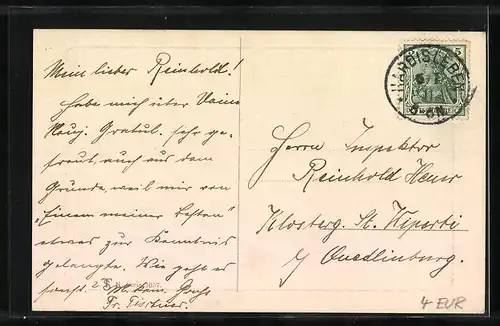 Mein lieber Reinhold!
Habe mich über Deine
Neuj. Gratul. sehr ge-
freut, auch aus dem
Grunde, weil mir von
"Einem meiner besten"
etwas zur Kenntnis
gelangte. Wie geht es
sonst.
Fr.
HARDISLEBEN
5
Herrn Inspektor
Reinhold
Klosterg. St. Wiperti
b/ Quedlinburg
4 EUR